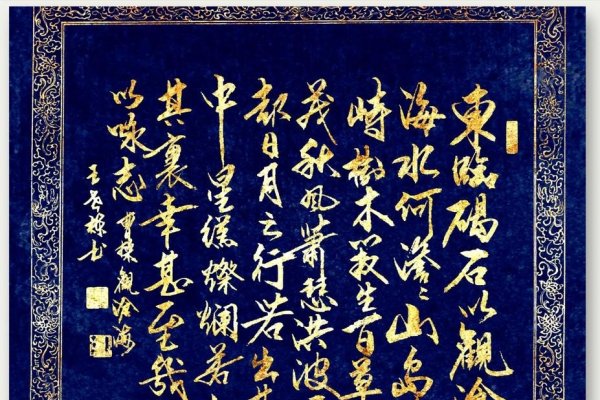 東臨碣石以觀滄
海水何澹々山岛
峙樹木叢生百草
茂秋风蕭瑟洪波
起日月之行若出
中星漢燦爛若
其裏幸甚至哉
以咏志 曹操觀滄海